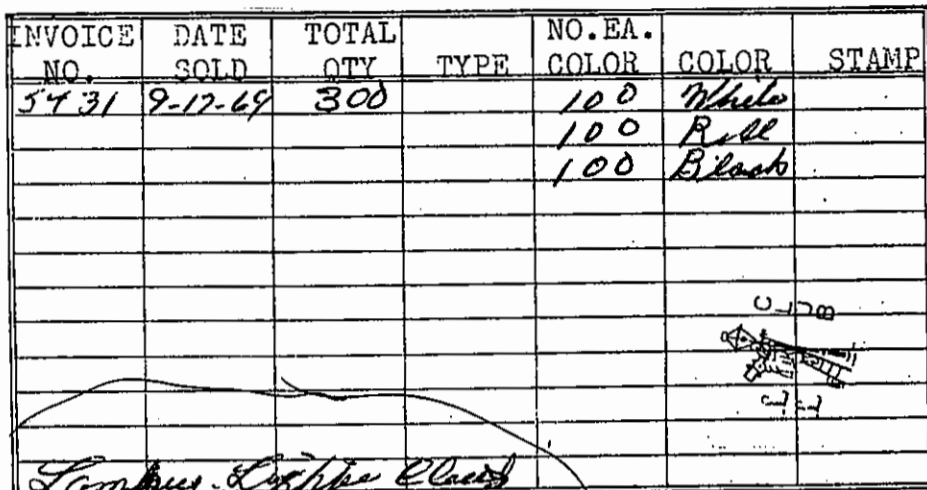 INVOICE NO. DATE SOLD TOTAL QTY TYPE NO.EA. COLOR COLOR STAMP
5431 9-17-69 300 100 White
100 Red
100 Black
CLUB